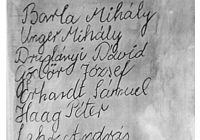 Barla Mihály
Unger Mihály
Dávid
József
Erhardt Sámuel
Haag Péter
András